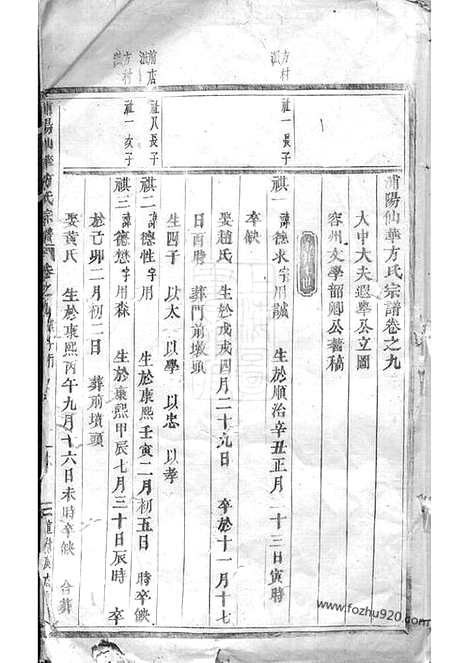 浦陽仙華方氏宗譜卷之九
大中大夫遐舉公立圖
容州文學韶卿公舊稿
方村派
祉一長子
祺一 諱德求字用誠 生於順治辛丑正月二十三日寅時
卒缺
娶趙氏 生於戊戌四月二十九日 卒於十一月十七
日酉時 葬門前墩頭
生四子 以太 以學 以忠 以孝
前店派
祉八長子
祺二 諱德性字用 生於康熙壬寅二月初五日 時卒缺
方村派
祉一次子
祺三 諱德懋字用森 生於康熙甲辰七月三十日辰時 卒
於己卯二月初二日 葬前墳頭
娶黃氏 生於康熙丙午九月十六日未時卒缺 合葬
浦陽仙華方氏宗譜 卷之
www.fozhu920.com